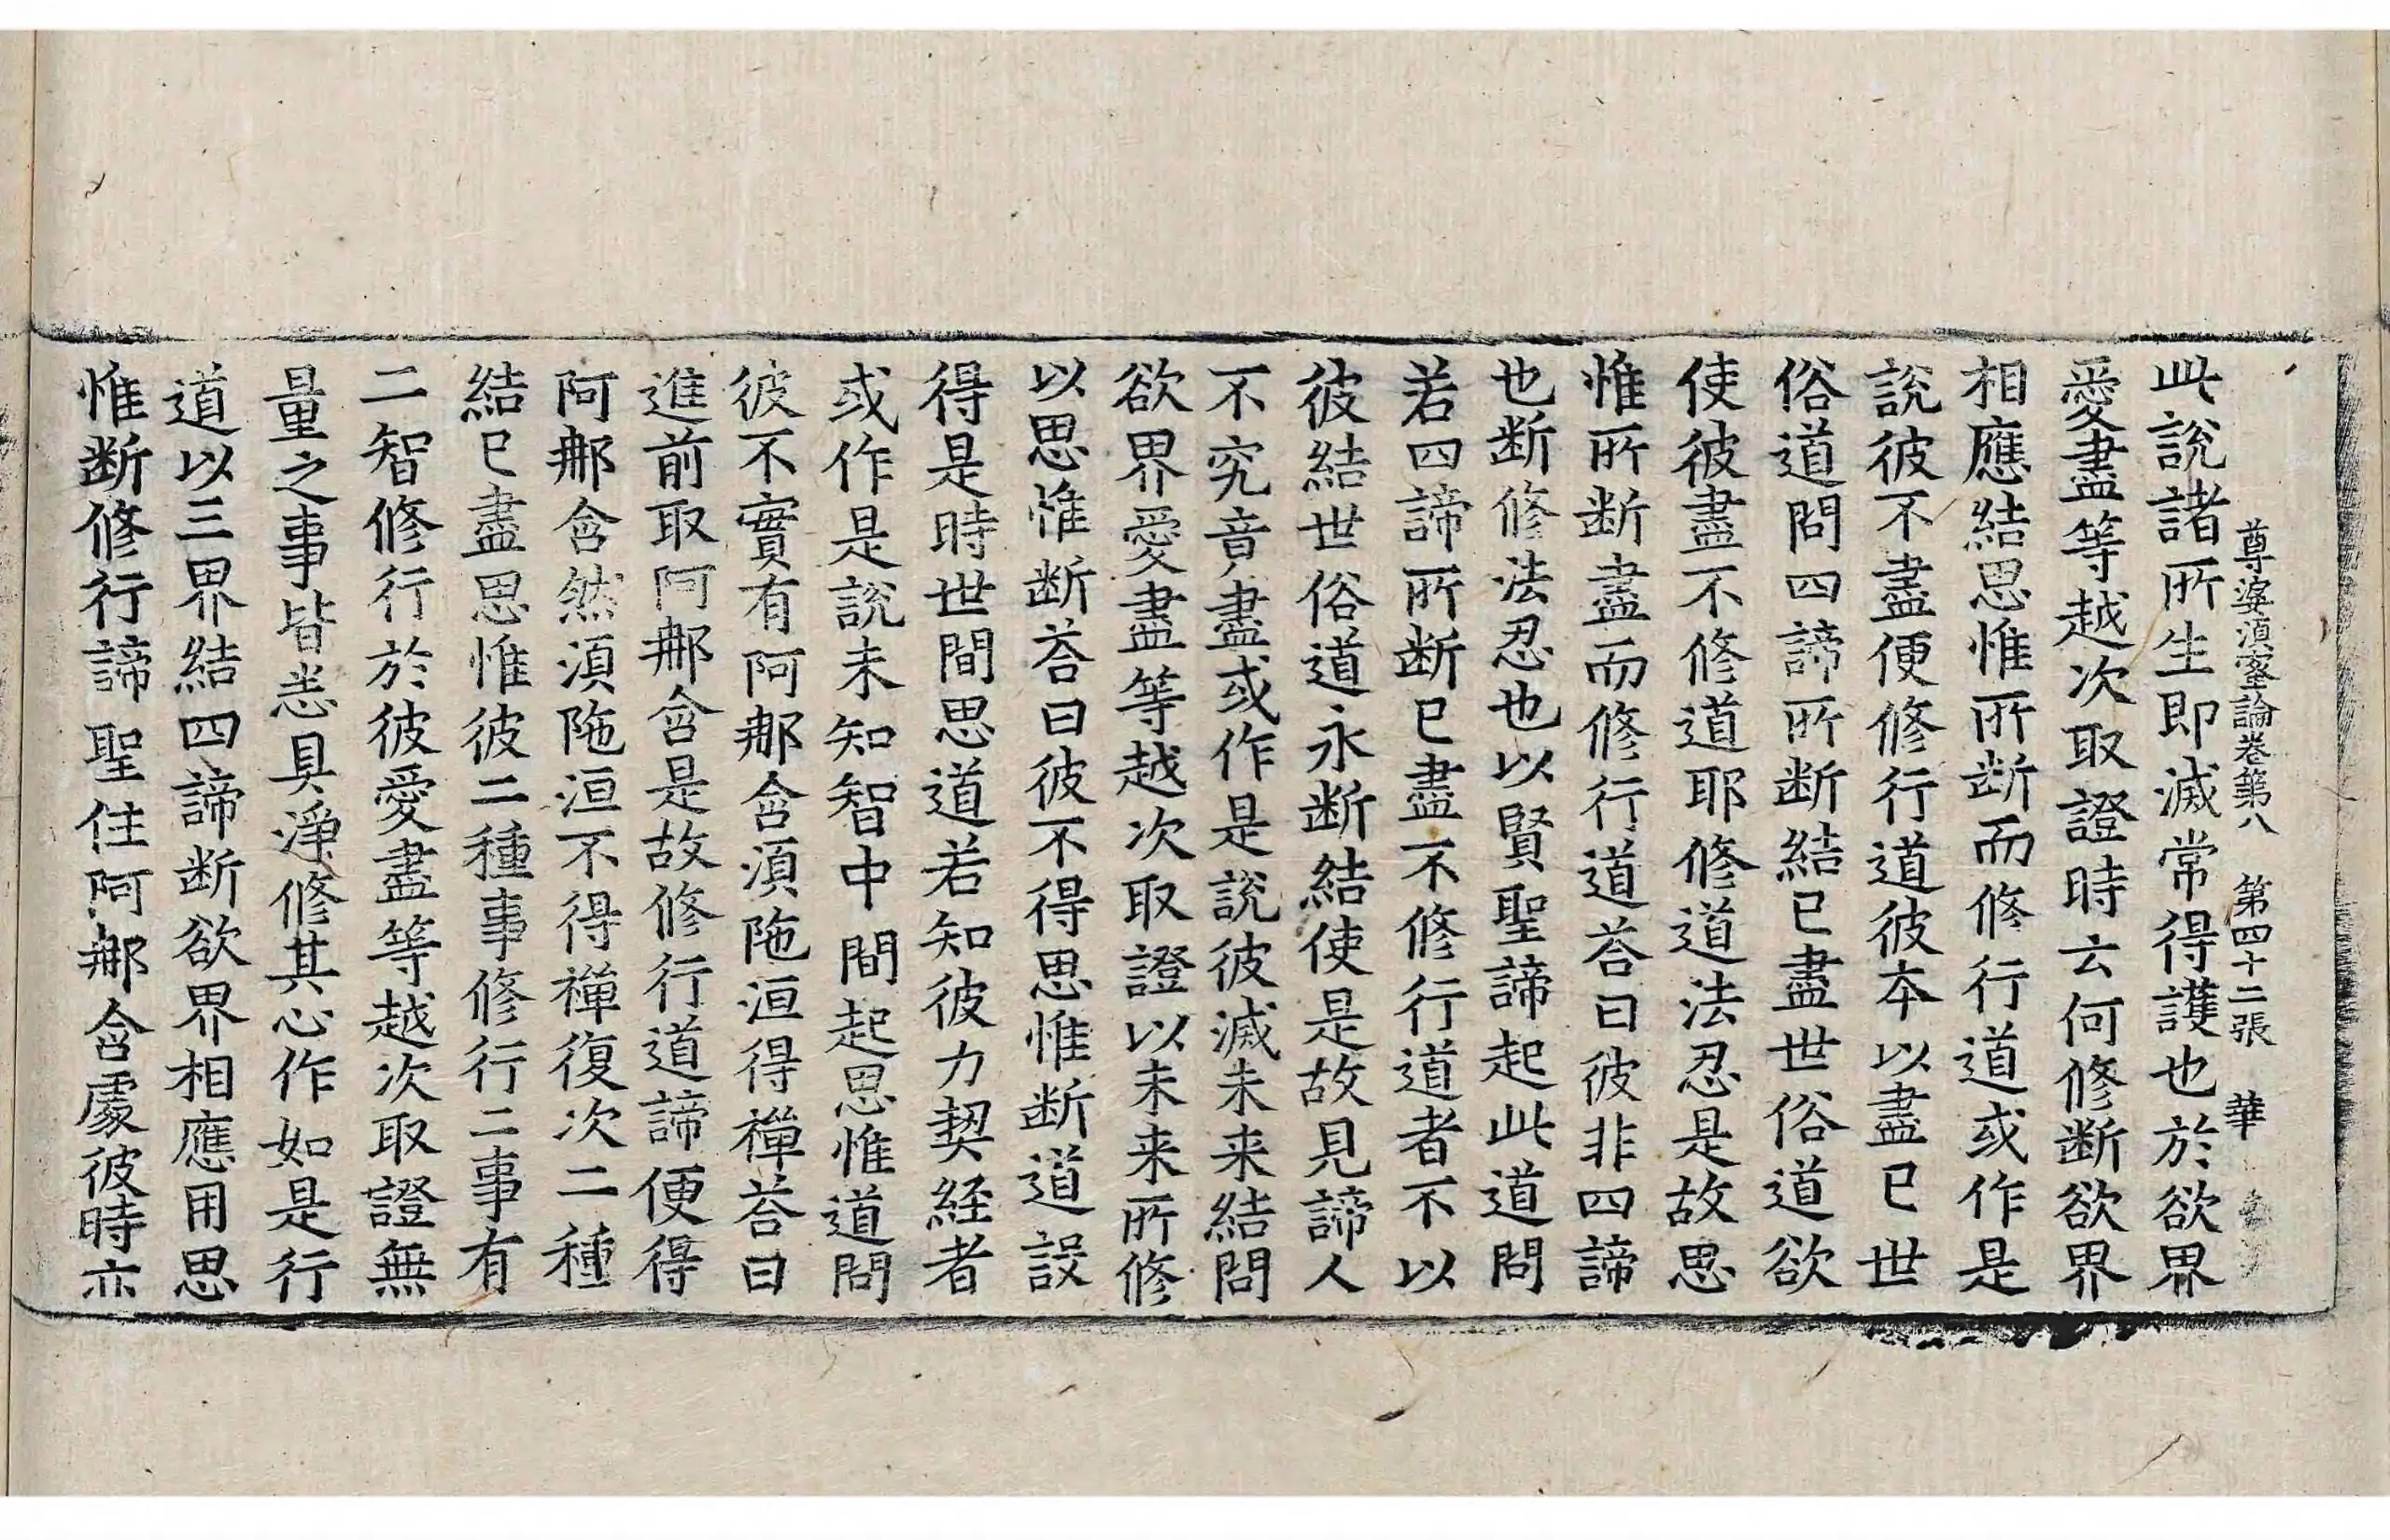 尊婆湏蜜論卷第八 第四十二張 華
此說諸所生即滅常得護也於欲界
愛盡等越次取證時云何修断欲界
相應結思惟所断而修行道或作是
說彼不盡便修行道彼本以盡已世
俗道問四諦所断結已盡世俗道欲
使彼盡不修道耶修道法忍是故思
惟所断盡而修行道荅曰彼非四諦
也断修法忍也以賢聖諦起此道問
若四諦所断已盡不修行道者不以
彼結世俗道永断結使是故見諦人
不究竟盡或作是說彼滅未来結問
欲界愛盡等越次取證以未来所修
以思惟断荅曰彼不得思惟断道設
得是時世間思道若知彼力契経者
或作是說未知智中間起思惟道問
彼不實有阿那含湏陁洹得禪荅曰
進前取阿那含是故修行道諦便得
阿那含然湏陁洹不得禪復次二種
結已盡思惟彼二種事修行二事有
二智修行於彼愛盡等越次取證無
量之事皆悉具淨修其心作如是行
道以三界結四諦断欲界相應用思
惟断修行諦聖住阿那含處彼時亦